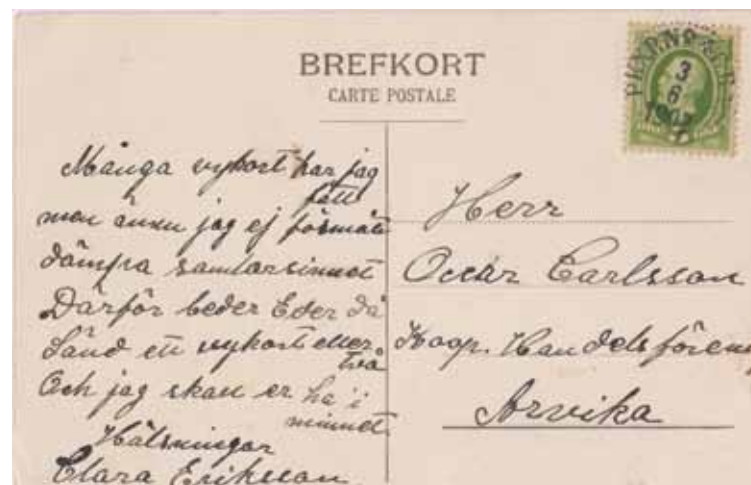 BREFKORT
CARTE POSTALE
3
6
190
Många vykort har jag
fått
men ännu jag ej förmått
dämpa samlarsinnet
Därför beder Eder då
Sänd ett vykort eller
två
Och jag skall er ha i
minnet
Hälsningar
Clara Eriksson
Herr
Oscar Carlsson
Koop. Handelsfören
Arvika